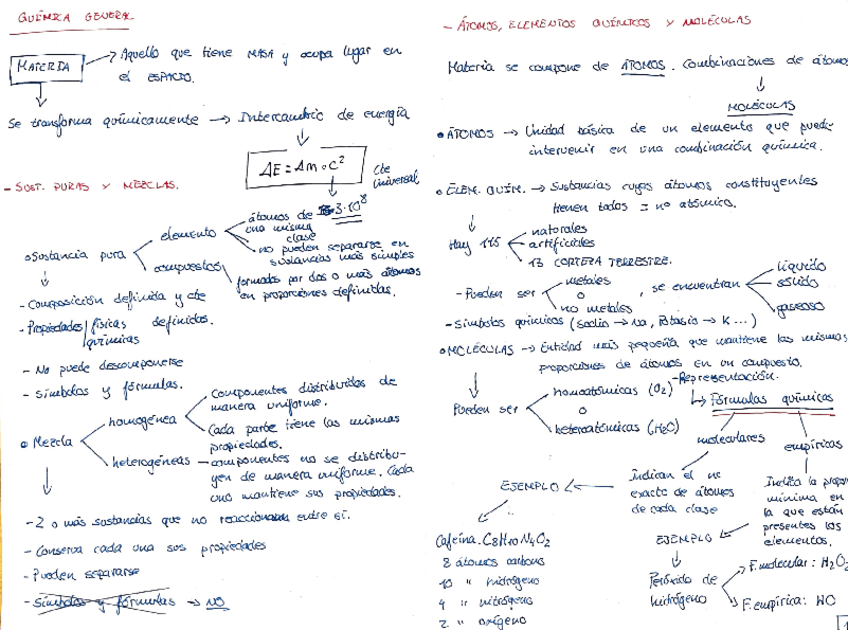 QUÍMICA GENERAL
MATERIA → Aquello que tiene MASA y ocupa lugar en
el ESPACIO.
Se transforma químicamente → Intercambio de energía
ΔE = Δm · c² Cte
Universal
3·10⁸
- SUST. PURAS Y MEZCLAS.
Sustancia pura
elemento
átomos de
una misma
clase
no pueden separarse en
sustancias más simples
compuestos
formados por dos o más átomos
en proporciones definidas.
- Composición definida y cte
- Propiedades físicas definidas.
químicas
- No puede descomponerse
- Símbolos y fórmulas.
Mezcla
homogénea
Componentes distribuidos de
manera uniforme.
Cada parte tiene las mismas
propiedades.
heterogéneas - componentes no se distribu-
yen de manera uniforme. Cada
uno mantiene sus propiedades.
- 2 o más sustancias que no reaccionan entre sí.
- Conserva cada una sus propiedades
- Pueden separarse
- Símbolos y fórmulas → NO
- ÁTOMOS, ELEMENTOS QUÍMICOS Y MOLÉCULAS
Materia se compone de ÁTOMOS. Combinaciones de átomos
↓
MOLÉCULAS
• ÁTOMOS → Unidad básica de un elemento que puede
intervenir en una combinación química.
• ELEM. QUÍM. → Sustancias cuyos átomos constituyentes
tienen todos = no atómico.
Hay 115
naturales
artificiales
13 CORTEZA TERRESTRE.
- Pueden ser
metales
o
no metales
, se encuentran
líquido
sólido
gaseoso
- Símbolos químicos (sodio → Na, Potasio → K ...)
• MOLÉCULAS → Entidad más pequeña que mantiene las mismas
proporciones de átomos en un compuesto.
Pueden ser
homoatómicas (O₂)
o
heteroatómicas (H₂O)
- Representación.
↳ Fórmulas químicas
moleculares
empíricas
Indican el no
exacto de átomos
de cada clase
EJEMPLO
Cafeína. C8H10N4O2
8 átomos carbono
10 " hidrógeno
4 " nitrógeno
2 " oxígeno
Indica la propor
mínima en
la que están
presentes los
elementos.
EJEMPLO
Peróxido de
hidrógeno
F. molecular: H₂O₂
F. empírica: HO
1